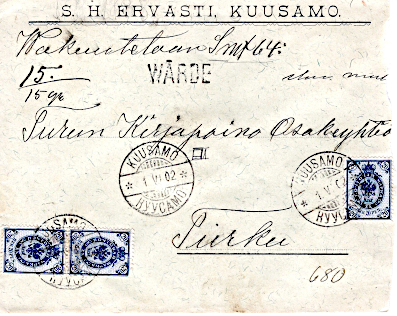 S. H. ERVASTI, KUUSAMO.
Wakuutetaan Smk 64:
15.
WÄRDE
15 gr
Turun Kirjapaino Osakeyhtiö
III
KUUSAMO
1 VI 02
КУУСАМО
KUUSAMO
1 VI 02
КУУСАМО
Turku
KUUSAMO
КУУСАМО
680